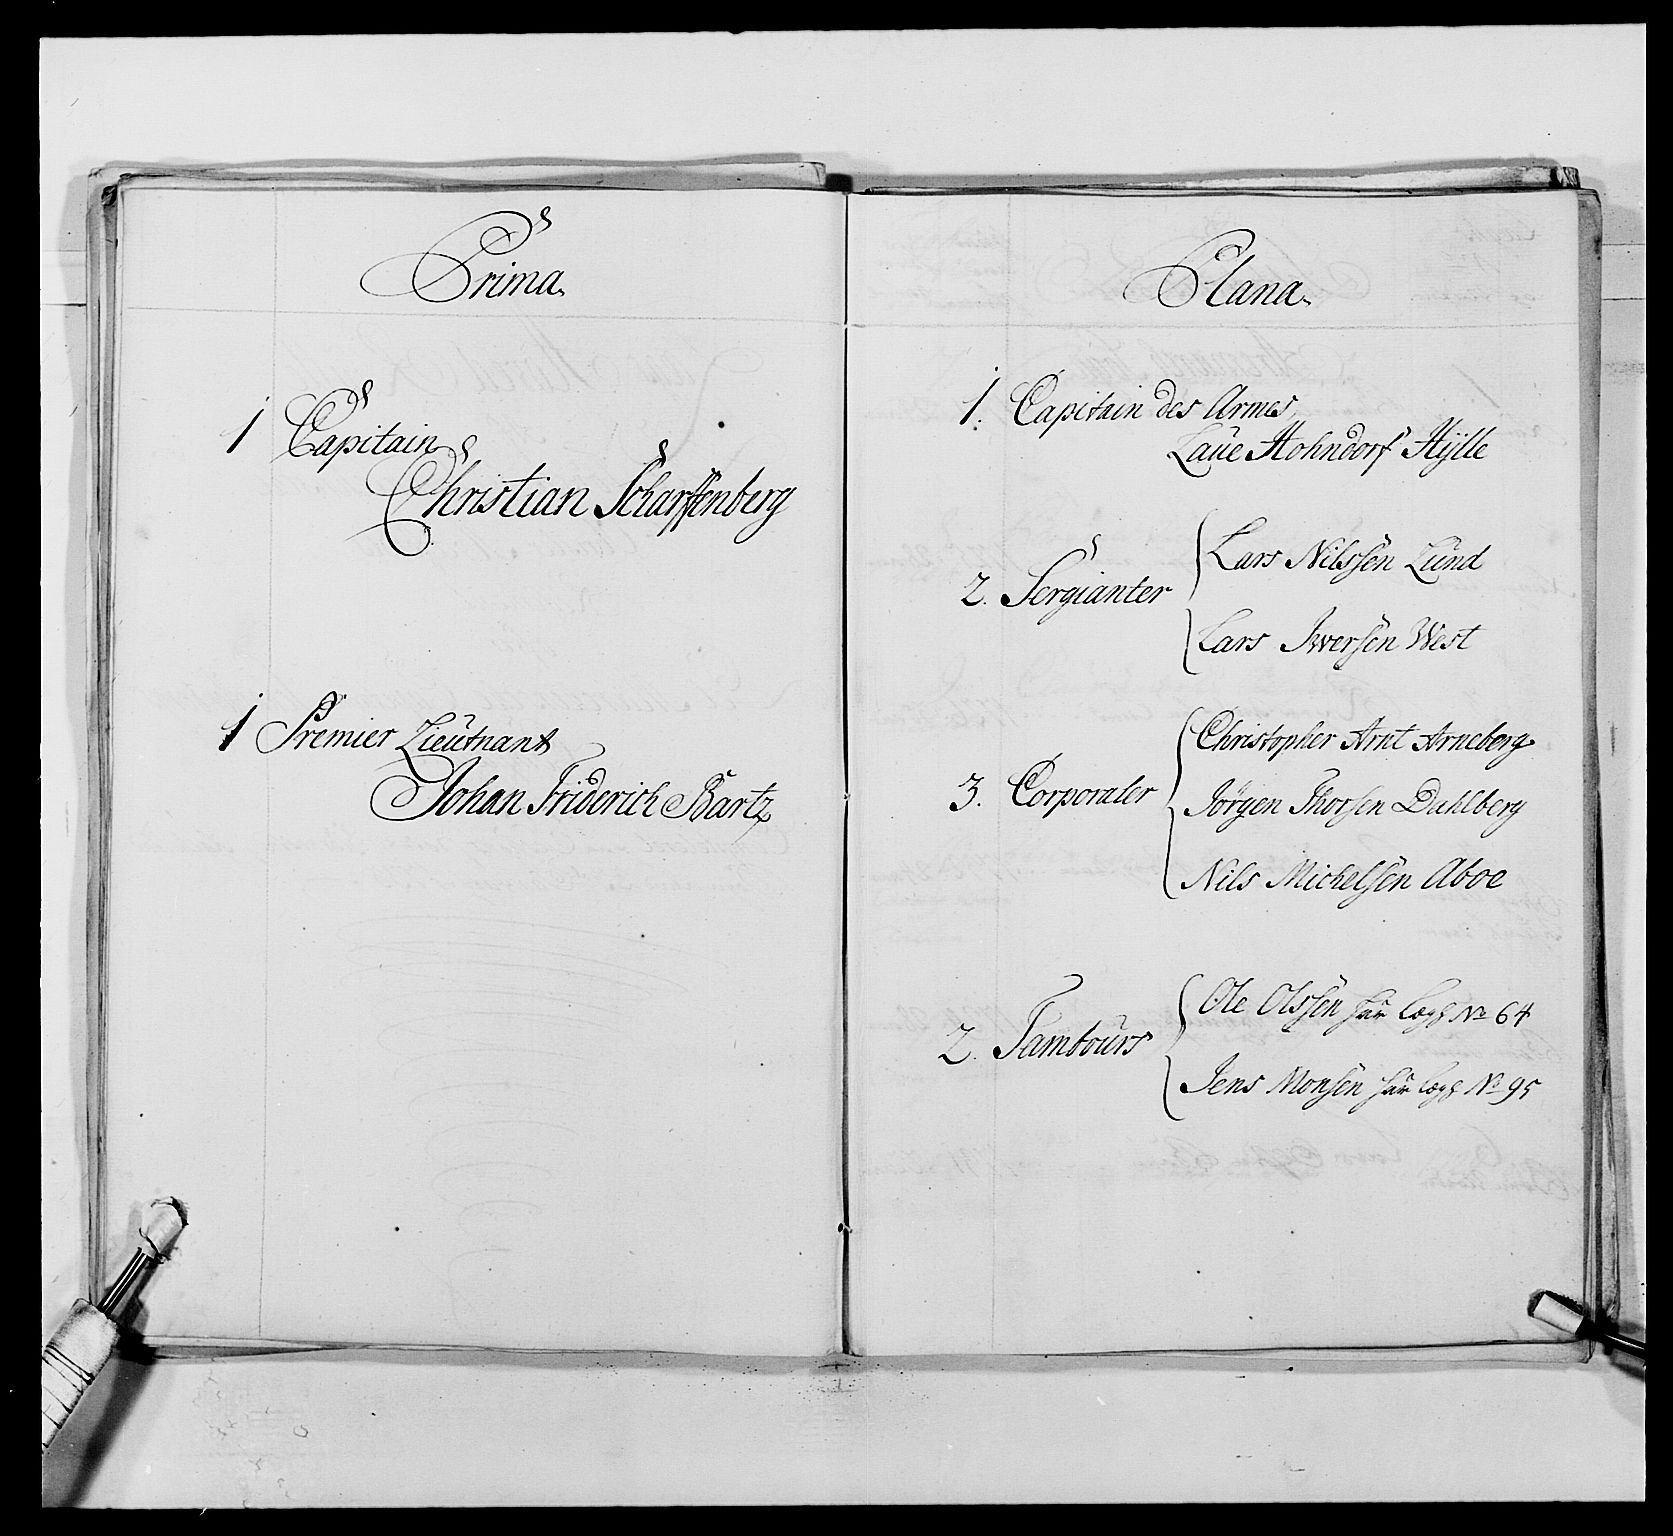 Prima
1 Capitain
Christian Scharffenberg
1 Premier Lieutnant
Johan Friderich Bartz
Plana
1. Capitain des Armes
Laue Hohndorf Hÿlle
2. Sergianter
Lars Nilssen Lund
Lars Iwersen West
3. Corporaler
Christopher Arnt Arneberg
Jörgen Thorsen Dahlberg
Nils Michelsen Aboe
2. Tambours
Ole Olssen har Lægd No 64
Jens Monsen har Lægd No 95